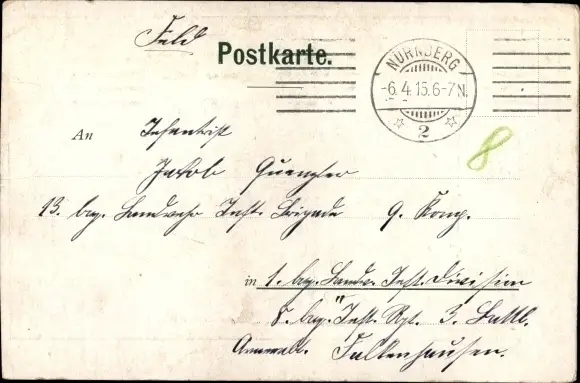 Feld
Postkarte.
NÜRNBERG
-6.4.15.6-7N.
2
8
An Infanterist
Jacob
13. bay. Landwehr Inft. Brigade 9. Komp.
in 1. bay. Landw. Inft. Division
8. bay. Inft. Rgt. 3. Battl.
Falkenhausen.